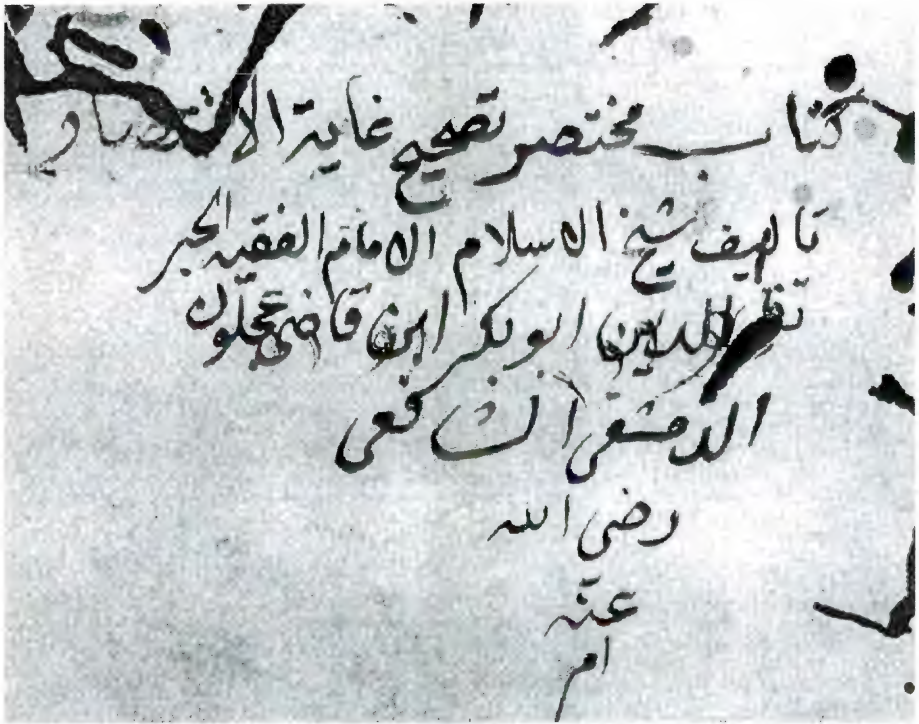 كتاب مختصر تصحيح غاية الاختصار
تاليف شيخ الاسلام الامام الفقيه الحبر
تقي الدين ابو بكر ابن قاضي عجلون
الدمشقي الشافعي
رضي الله
عنه
ام